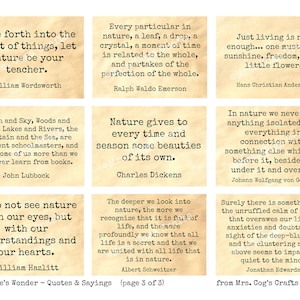 forth into the
of things, let
nature be your
teacher.
William Wordsworth
Every particular in
nature, a leaf, a drop, a
crystal, a moment of time
is related to the whole,
and partakes of the
perfection of the whole.
Ralph Waldo Emerson
Just living is
enough... one must
sunshine, freedom,
little flower
Hans Christian Ander
and Sky, Woods and
Lakes and Rivers, the
and the Sea, are
schoolmasters, and
some of us more than we
ever learn from books.
John Lubbock
Nature gives to
every time and
season some beauties
of its own.
Charles Dickens
In nature we never
anything isolated
everything
connection with
something else
before it, beside
under it and over
Johann Wolfgang von G
not see nature
our eyes, but
with our
understandings and
our hearts.
William Hazlitt
The deeper we look into
nature, the more we
recognise that it is full of
life, and the more
profoundly we know that all
life is a secret and that we
are united with all life that
is in nature.
Albert Schweitzer
Surely there is something
the unruffled calm of
that overawes our li
anxieties and doubts
sight of the deep-blue
and the clustering
above seem to impart
quiet to the mind.
Jonathan Edwards
's Wonder – Quotes & Sayings (page 3 of 3)
from Mrs. Cog's Crafts